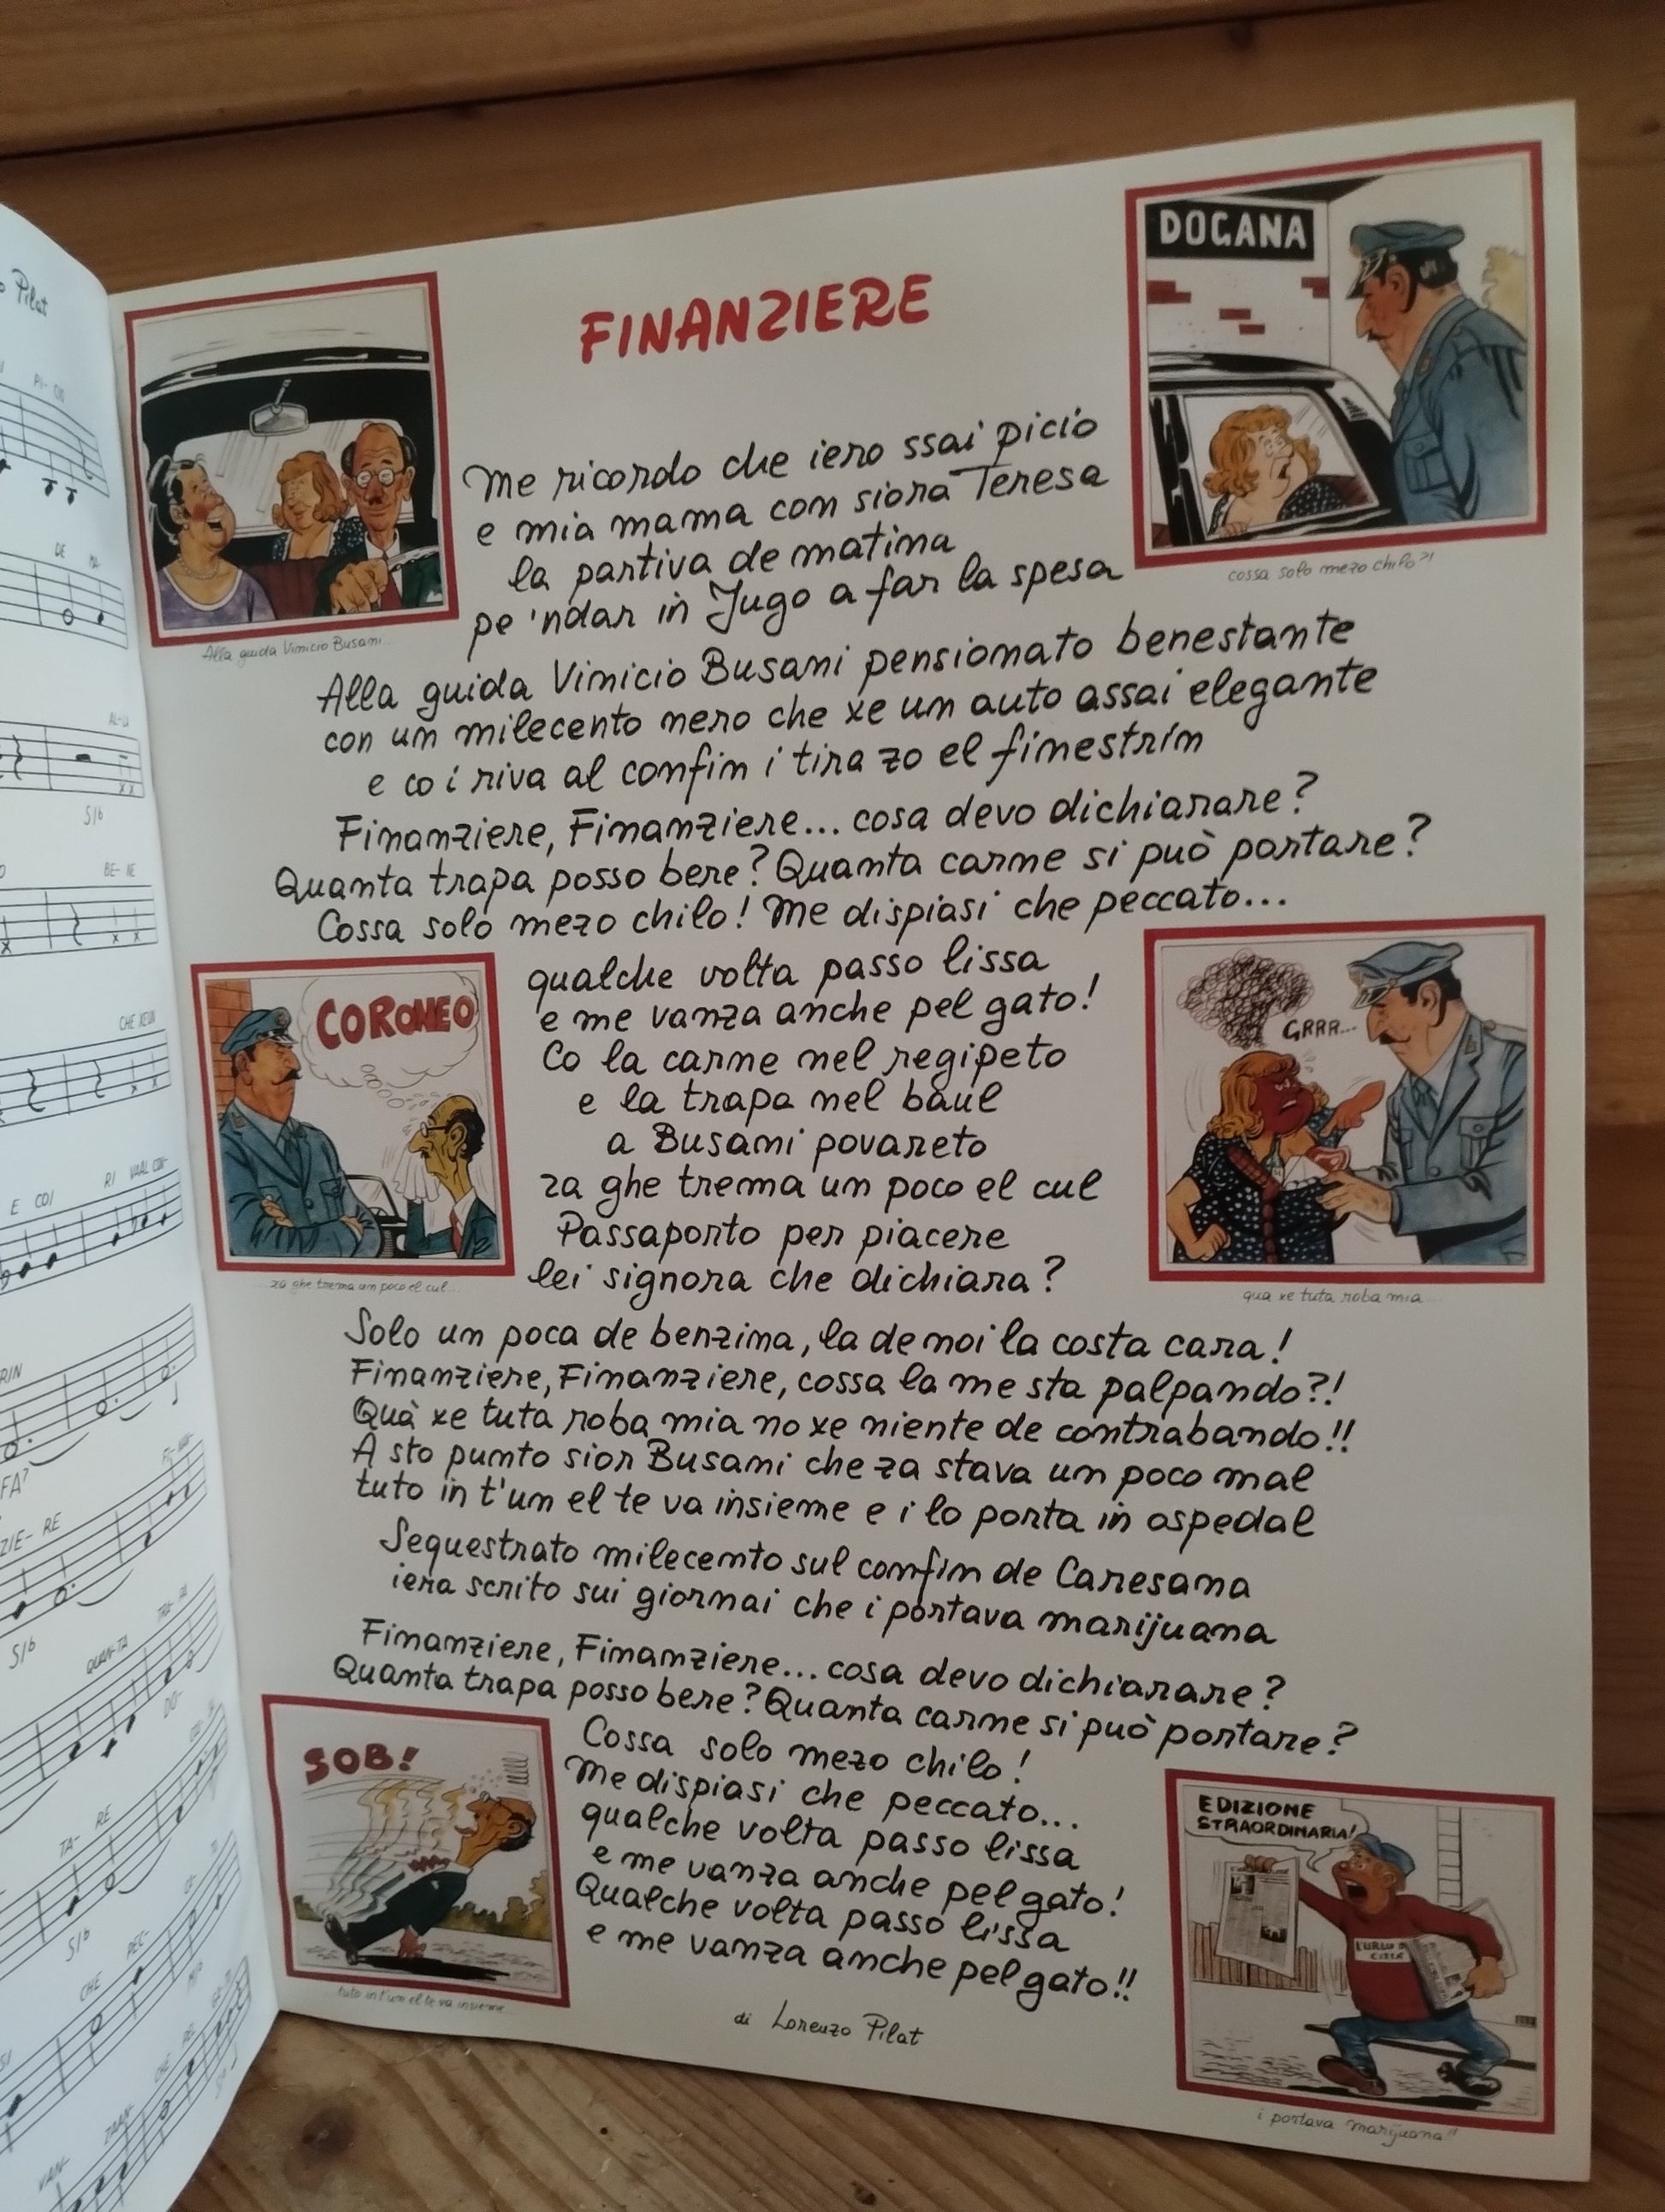 FINANZIERE
DOGANA
Alla guida Vinicio Busani...
cossa solo mezo chilo?!
me ricordo che iero ssai picio
e mia mama con siora Teresa
la partiva de matina
pe 'ndar in Jugo a far la spesa
Alla guida Vinicio Busani pensionato benestante
con un milecento nero che xe un auto assai elegante
e co i riva al confin i tira zo el finestrin
Finanziere, Finanziere... cosa devo dichiarare?
Quanta trapa posso bere? Quanta carne si può portare?
Cossa solo mezo chilo! Me dispiasi che peccato...
qualche volta passo lissa
e me vanza anche pel gato!
Co la carne nel regipeto
e la trapa nel baul
a Busani povareto
za ghe trema un poco el cul
Passaporto per piacere
lei signora che dichiara?
CORONEO
za ghe trema un poco el cul...
GRRR...
qua xe tuta roba mia...
Solo un poca de benzina, la de noi la costa cara!
Finanziere, Finanziere, cossa la me sta palpando?!
Quà xe tuta roba mia no xe niente de contrabando!!
A sto punto sior Busani che za stava un poco mal
tuto in t'un el te va insieme e i lo porta in ospedal
Sequestrato milecento sul confin de Caresana
iera scrito sui giornai che i portava marijuana
Finanziere, Finanziere... cosa devo dichiarare?
Quanta trapa posso bere? Quanta carne si può portare?
Cossa solo mezo chilo!
Me dispiasi che peccato...
qualche volta passo lissa
e me vanza anche pel gato!
Qualche volta passo lissa
e me vanza anche pel gato!!
di Lorenzo Pilat
SOB!
tuto in t'un el te va insieme
EDIZIONE
STRAORDINARIA!
i portava marijuana!!
Pilat
PI- CIO
DE
AL-LA
SIb
BE- NE
CHE XE UN
E COI
RI VA AL CON-
RIN
FA?
ZIE- RE
SIb
QUAN-TA
DO-
TA- RE
SIb
CHE
PEC-
CHE
PEL
VAN-